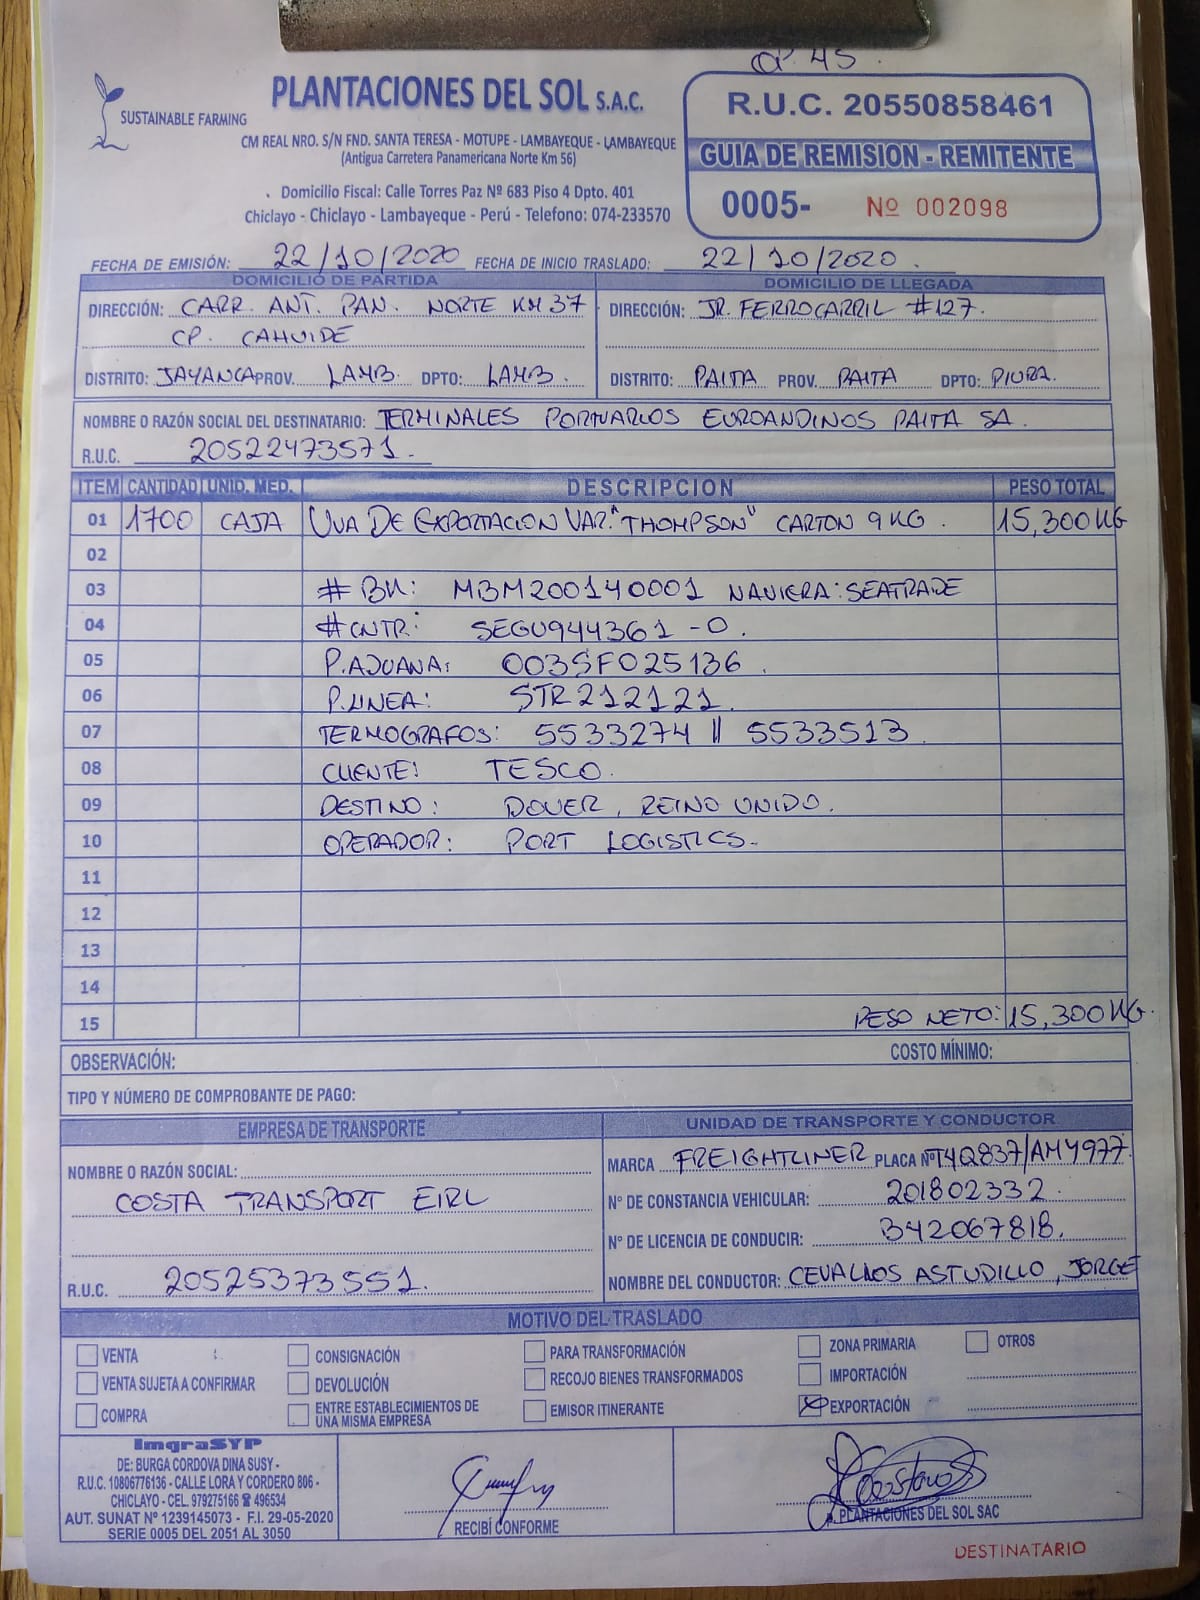 OP. 45.
SUSTAINABLE FARMING
PLANTACIONES DEL SOL S.A.C.
CM REAL NRO. S/N FND. SANTA TERESA - MOTUPE - LAMBAYEQUE - LAMBAYEQUE
(Antigua Carretera Panamericana Norte Km 56)
Domicilio Fiscal: Calle Torres Paz Nº 683 Piso 4 Dpto. 401
Chiclayo - Chiclayo - Lambayeque - Perú - Telefono: 074-233570
R.U.C. 20550858461
GUIA DE REMISION - REMITENTE
0005- Nº 002098
FECHA DE EMISIÓN: 22/10/2020 FECHA DE INICIO TRASLADO: 22/10/2020.
DOMICILIO DE PARTIDA
DIRECCIÓN: CARR. ANT. PAN. NORTE KM 37
CP. CAHUIDE
DISTRITO: JAYANCA PROV. LAMB. DPTO: LAMB.
DOMICILIO DE LLEGADA
DIRECCIÓN: JR. FERROCARRIL #127.
DISTRITO: PAITA PROV. PAITA DPTO: PIURA.
NOMBRE O RAZÓN SOCIAL DEL DESTINATARIO: TERMINALES PORTUARIOS EUROANDINOS PAITA SA.
R.U.C. 20522473571.
ITEM CANTIDAD UNID. MED. DESCRIPCION PESO TOTAL
01 1700 CAJA UVA DE EXPORTACION VAR. "THOMPSON" CARTON 9 KG. 15,300 KG
02
03 # BK: MBM200140001 NAVIERA: SEATRADE
04 # CNTR: SEGU944361-0.
05 P. ADUANA: 003SF025136.
06 P. LINEA: STR212121.
07 TERMOGRAFOS: 5533274 || 5533513.
08 CLIENTE: TESCO.
09 DESTINO: DOVER, REINO UNIDO.
10 OPERADOR: PORT LOGISTICS.
11
12
13
14
15 PESO NETO: 15,300 KG.
OBSERVACIÓN: COSTO MÍNIMO:
TIPO Y NÚMERO DE COMPROBANTE DE PAGO:
EMPRESA DE TRANSPORTE
NOMBRE O RAZÓN SOCIAL:
COSTA TRANSPORT EIRL
R.U.C. 20525373551.
UNIDAD DE TRANSPORTE Y CONDUCTOR
MARCA FREIGHTLINER PLACA Nº T4Q837/AMY977
Nº DE CONSTANCIA VEHICULAR: 201802332.
Nº DE LICENCIA DE CONDUCIR: B42067818.
NOMBRE DEL CONDUCTOR: CEVALLOS ASTUDILLO, JORGE
MOTIVO DEL TRASLADO
VENTA CONSIGNACIÓN PARA TRANSFORMACIÓN ZONA PRIMARIA OTROS
VENTA SUJETA A CONFIRMAR DEVOLUCIÓN RECOJO BIENES TRANSFORMADOS IMPORTACIÓN
COMPRA ENTRE ESTABLECIMIENTOS DE UNA MISMA EMPRESA EMISOR ITINERANTE EXPORTACIÓN
ImgraSYP
DE: BURGA CORDOVA DINA SUSY -
R.U.C. 10806776136 - CALLE LORA Y CORDERO 806 -
CHICLAYO - CEL. 979275166 ☎ 496534
AUT. SUNAT Nº 1239145073 - F.I. 29-05-2020
SERIE 0005 DEL 2051 AL 3050
RECIBÍ CONFORME
p. PLANTACIONES DEL SOL SAC
DESTINATARIO